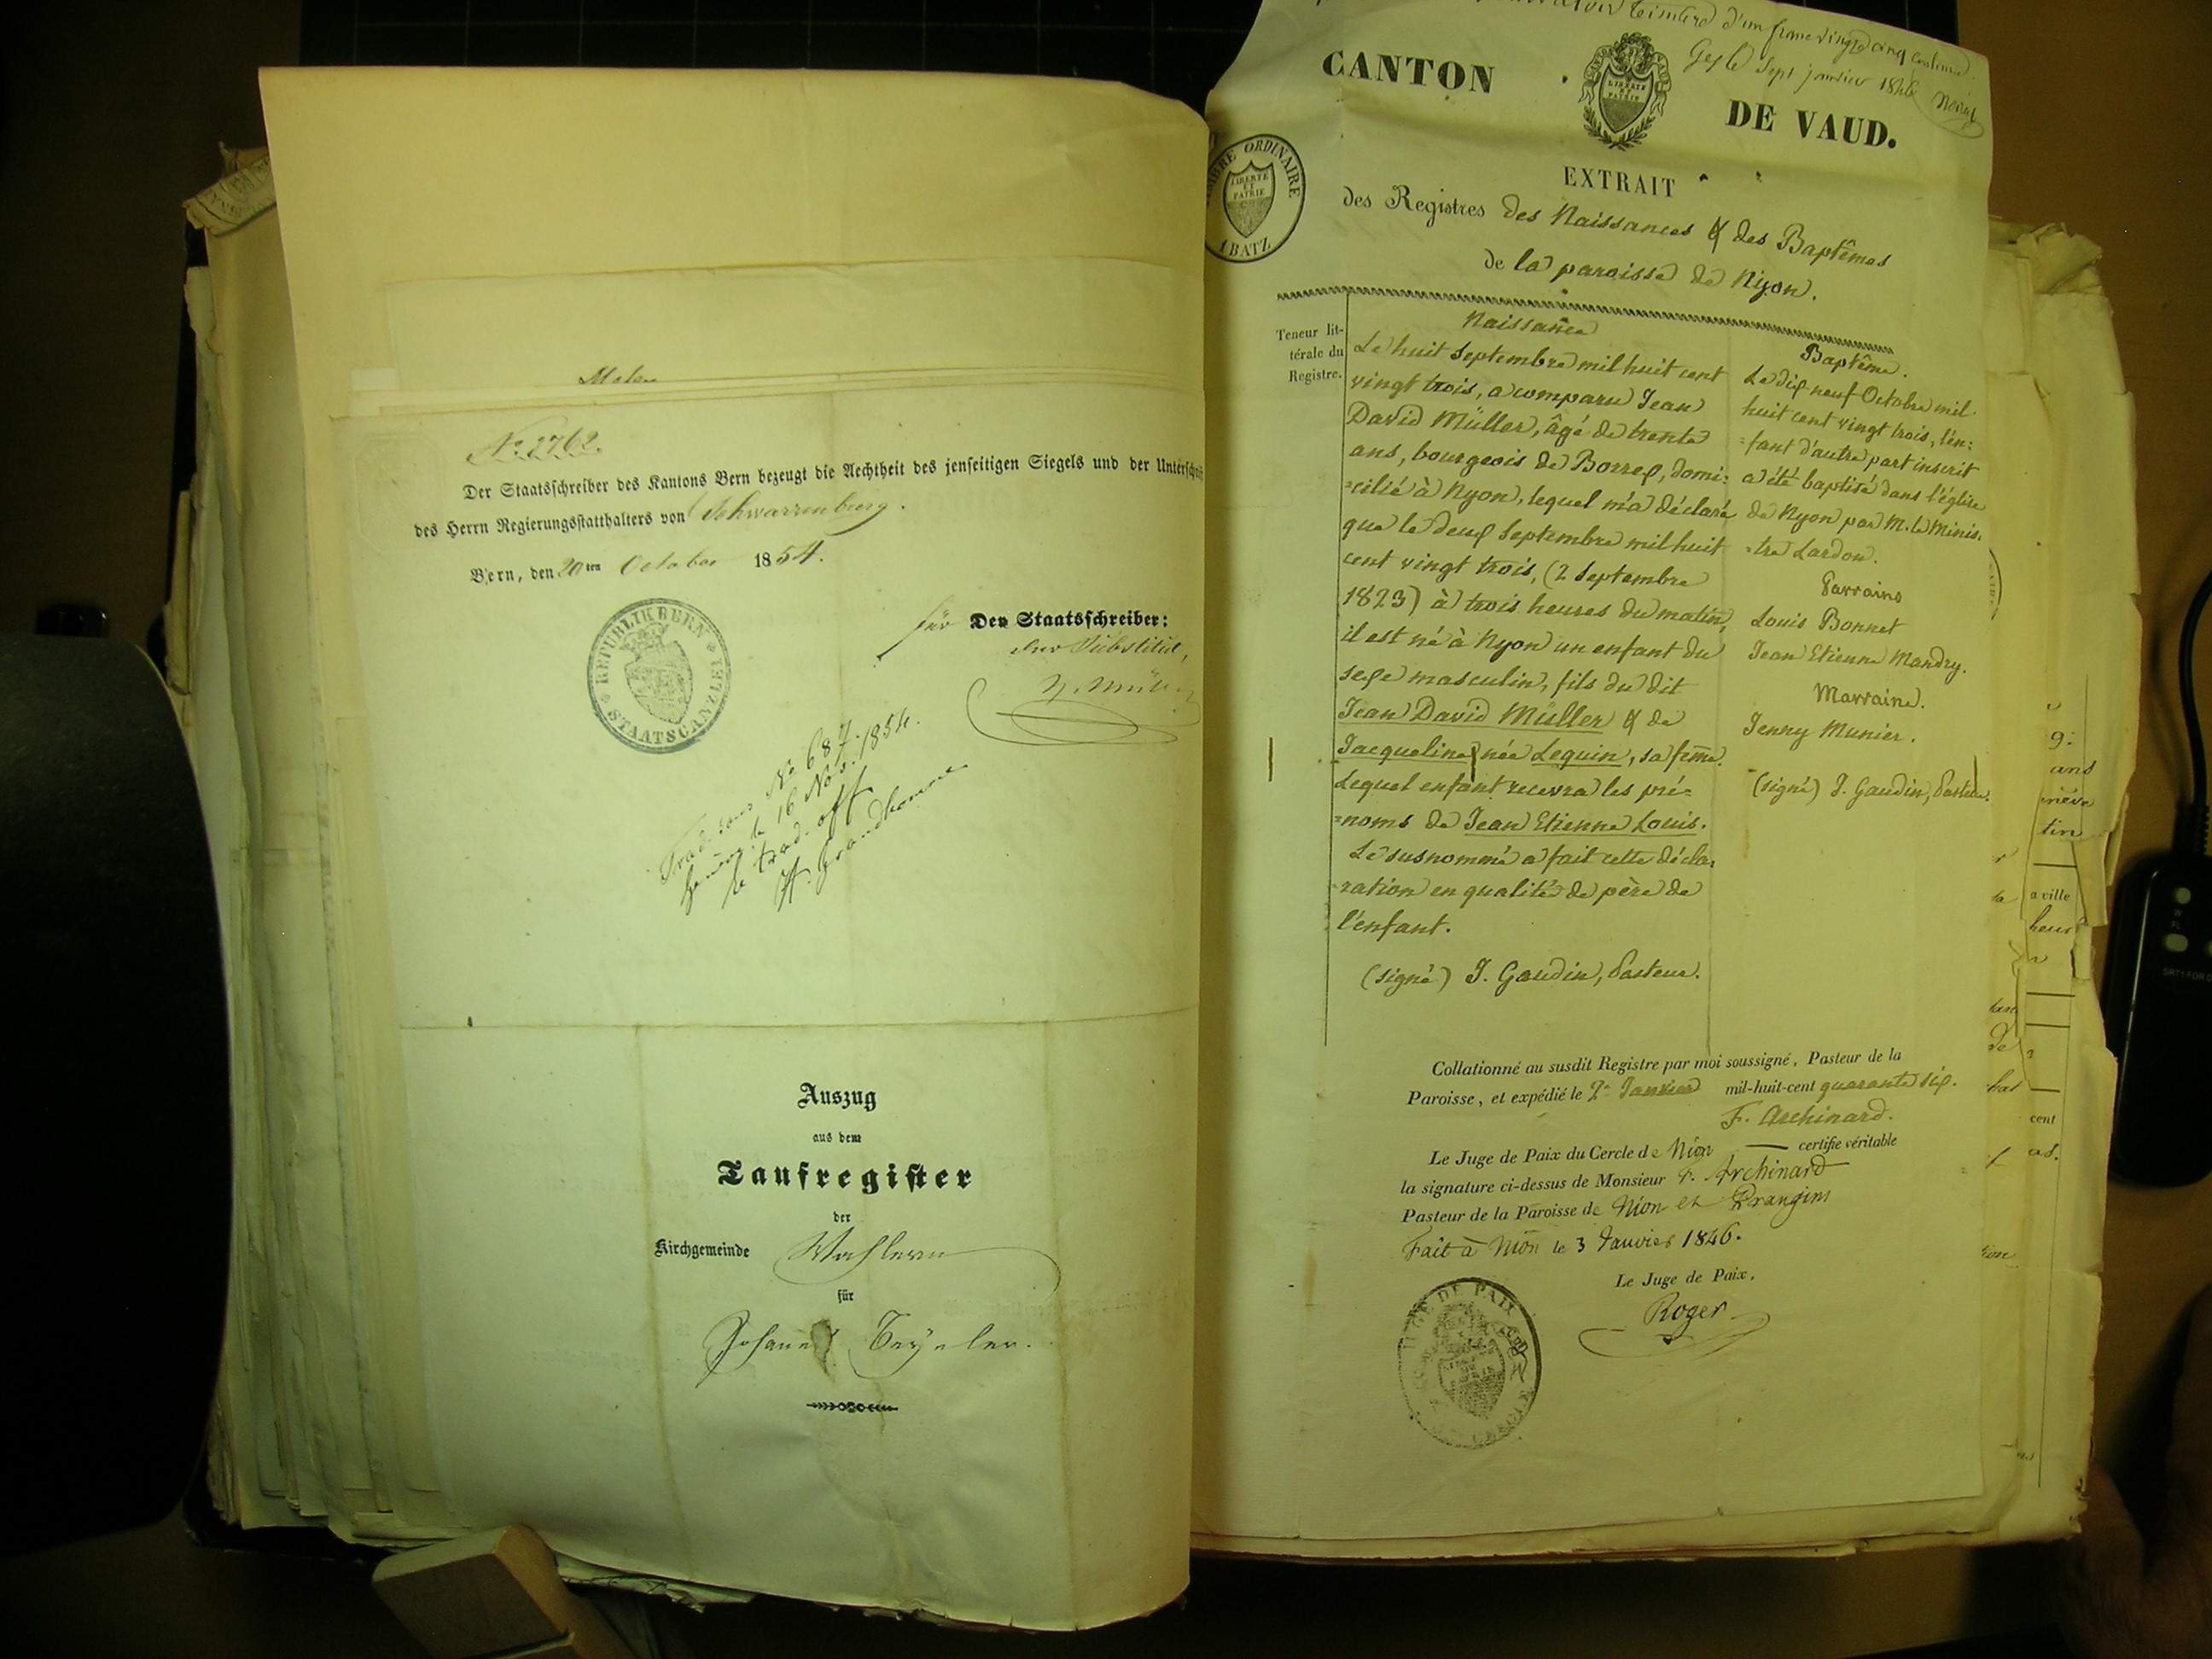 No. 2762.
Der Staatsschreiber des Kantons Bern bezeugt die Aechtheit des jenseitigen Siegels und der Unterschrift
des Herrn Regierungsstatthalters von Schwarzenburg.
Bern, den 20ten October 1854.
REPUBLIK BERN
STAATSCANZLEI
für Der Staatsschreiber:
der Substitut,
Trad. sous No 687.
le 16 Nov. 1854.
le trad. off.
H. Grandhomme
Auszug
aus dem
Taufregister
der
Kirchgemeinde Wahlern
für
Johannes Beyeler.
d'un franc vingt cinq centimes.
Gex le Sept janvier 1846
CANTON
DE VAUD.
CANTON DE VAUD
LIBERTÉ ET PATRIE
TIMBRE ORDINAIRE
LIBERTÉ ET PATRIE
1 BATZ
EXTRAIT
des Registres des Naissances & des Baptêmes
de la paroisse de Nyon.
Teneur lit-
térale du
Registre.
Naissance
Le huit Septembre mil huit cent
vingt trois, a comparu Jean
David Müller, âgé de trente
ans, bourgeois de Borrex, domi=
=cilié à Nyon, lequel m'a déclaré
que le deux Septembre mil huit
cent vingt trois, (2 Septembre
1823) à trois heures du matin,
il est né à Nyon un enfant du
sexe masculin, fils du dit
Jean David Müller & de
Jacqueline née Lequin, sa feme.
Lequel enfant recevra les pré=
=noms de Jean Etienne Louis.
Le susnommé a fait cette décla=
=ration en qualité de père de
l'enfant.
(signé) J. Gaudin, Pasteur.
Baptême.
Le dix neuf Octobre mil
huit cent vingt trois, l'en=
=fant d'autre part inscrit
a été baptisé dans l'église
de Nyon par M. le Minis=
=tre Lardon.
Parrains
Louis Bonnet
Jean Etienne Mandry.
Marraine.
Jenny Munier.
(signé) J. Gaudin, Pasteur.
Collationné au susdit Registre par moi soussigné, Pasteur de la
Paroisse, et expédié le 2e Janvier mil-huit-cent quarante six.
F. Archinard.
Le Juge de Paix du Cercle de Nion — certifie véritable
la signature ci-dessus de Monsieur F. Archinard
Pasteur de la Paroisse de Nion et Prangins
Fait à Nion le 3 Janvier 1846.
Le Juge de Paix,
Roger
JUGE DE PAIX
ans
tin
a ville
heur
cent
as.